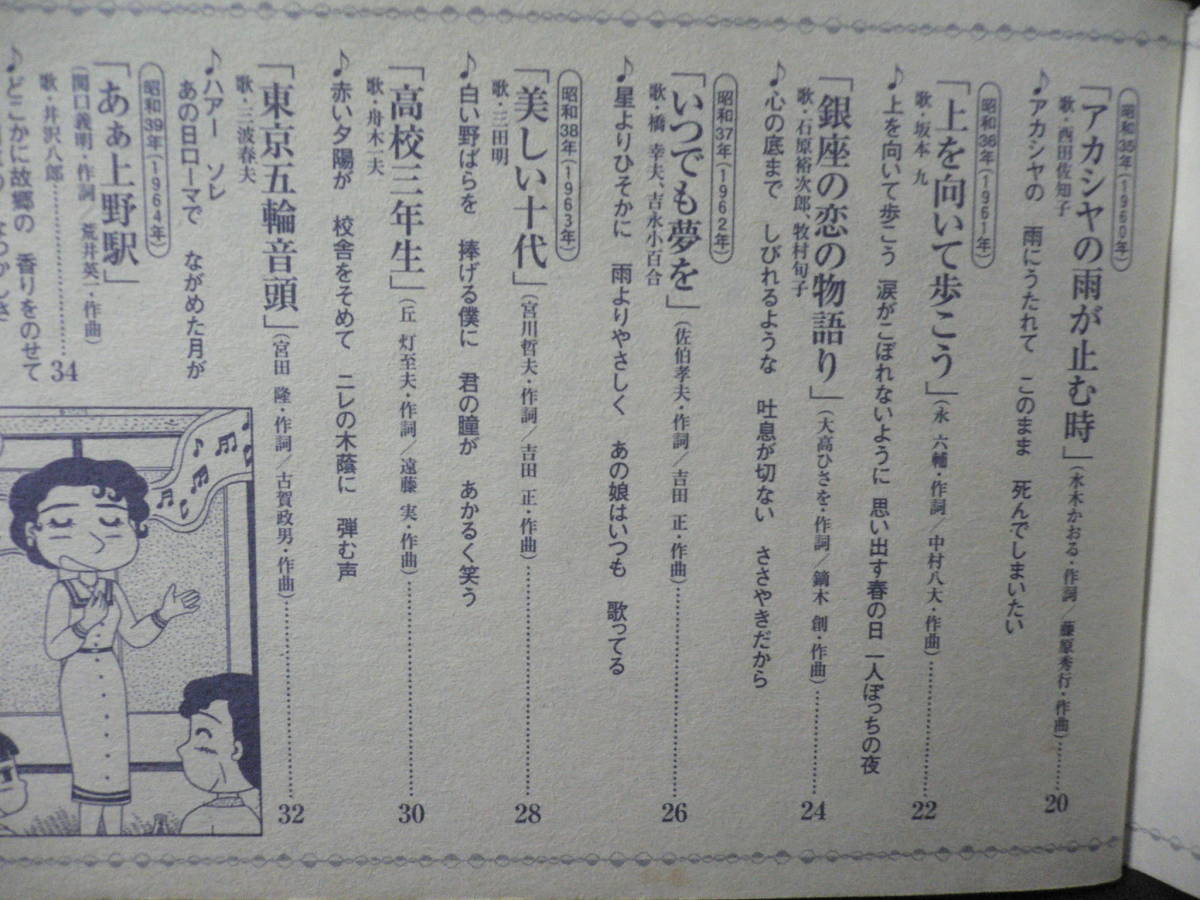 昭和35年(1960年)
「アカシヤの雨が止む時」(水木かおる・作詞／藤原秀行・作曲)………20
歌・西田佐知子
♪アカシヤの　雨にうたれて　このまま　死んでしまいたい
昭和36年(1961年)
「上を向いて歩こう」(永 六輔・作詞／中村八大・作曲)………22
歌・坂本 九
♪上を向いて歩こう 涙がこぼれないように 思い出す春の日 一人ぼっちの夜
「銀座の恋の物語り」(大高ひさを・作詞／鏑木 創・作曲)………24
歌・石原裕次郎、牧村旬子
♪心の底まで　しびれるような　吐息が切ない　ささやきだから
昭和37年(1962年)
「いつでも夢を」(佐伯孝夫・作詞／吉田 正・作曲)………26
歌・橋 幸夫、吉永小百合
♪星よりひそかに　雨よりやさしく　あの娘はいつも　歌ってる
昭和38年(1963年)
「美しい十代」(宮川哲夫・作詞／吉田 正・作曲)………28
歌・三田明
♪白い野ばらを　捧げる僕に　君の瞳が　あかるく笑う
「高校三年生」(丘 灯至夫・作詞／遠藤 実・作曲)………30
歌・舟木一夫
♪赤い夕陽が　校舎をそめて　ニレの木蔭に　弾む声
「東京五輪音頭」(宮田 隆・作詞／古賀政男・作曲)………32
歌・三波春夫
♪ハアー　ソレ
あの日ローマで　ながめた月が
昭和39年(1964年)
「あぁ上野駅」
(関口義明・作詞／荒井英一・作曲)
歌・井沢八郎………34
♪どこかに故郷の　香りをのせて